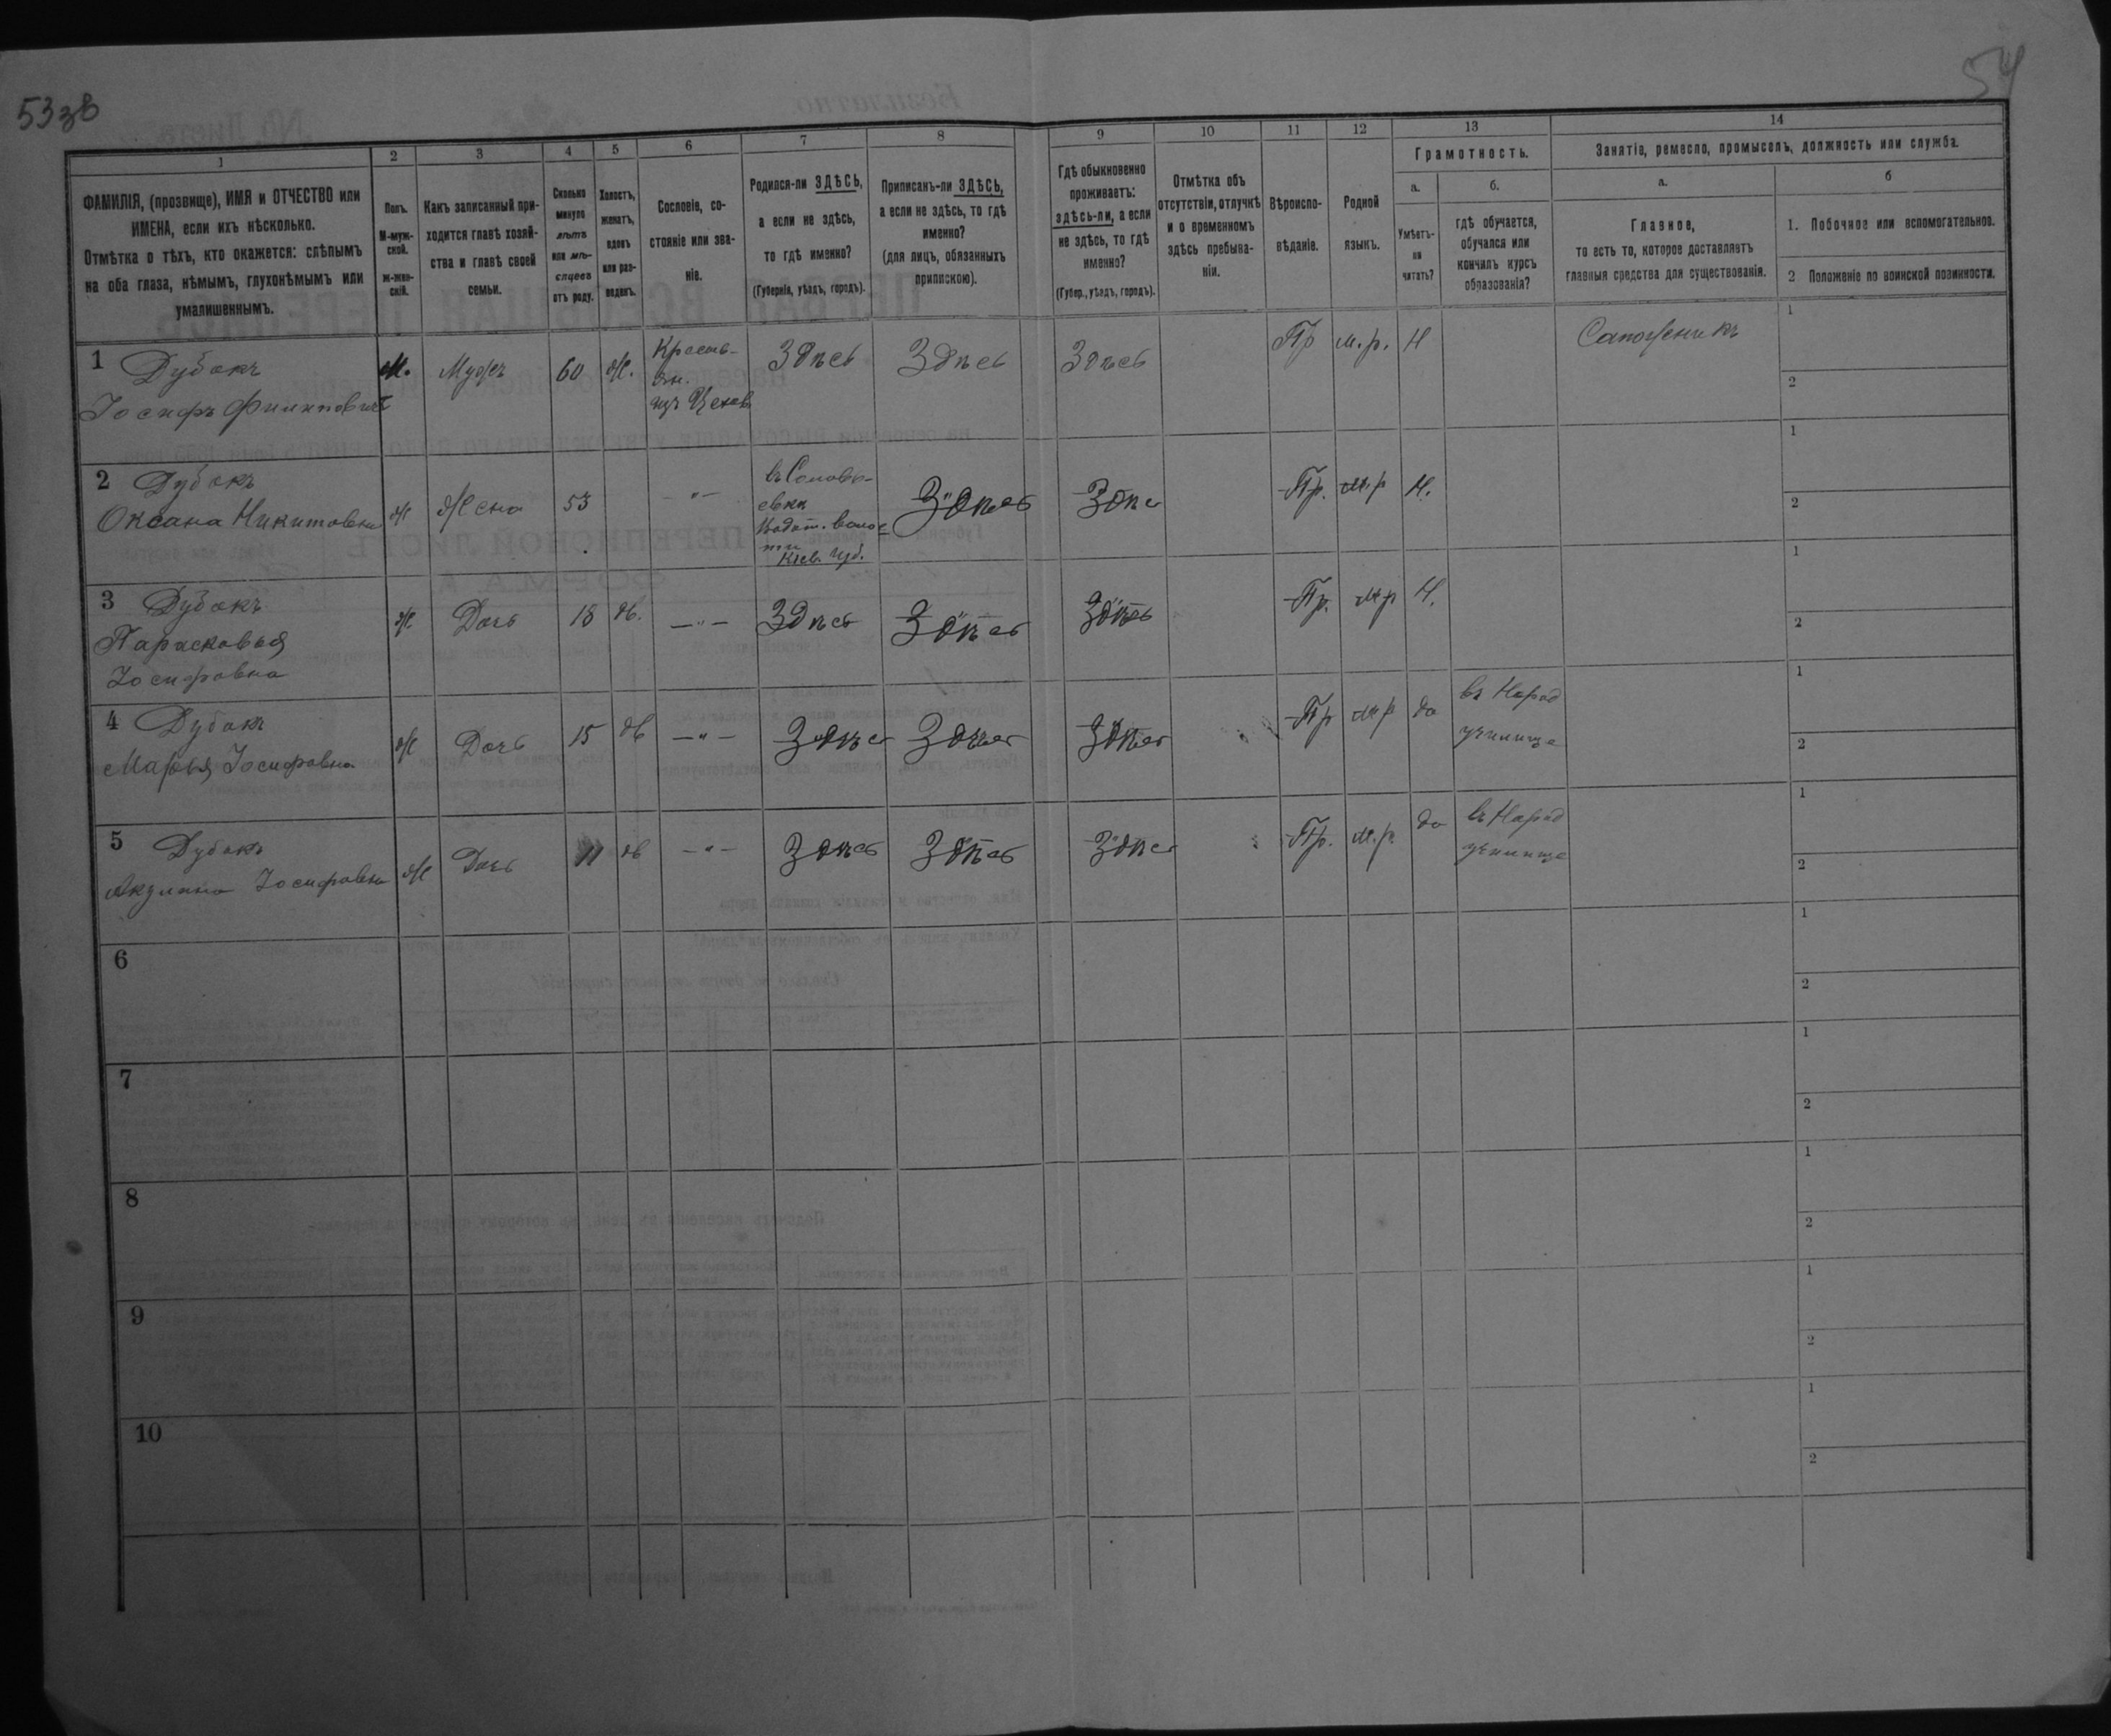 53зв
54
1
2
3
4
5
6
7
8
9
10
11
12
13
14
ФАМИЛІЯ, (прозвище), ИМЯ и ОТЧЕСТВО или
ИМЕНА, если ихъ нѣсколько.
Отмѣтка о тѣхъ, кто окажется: слѣпымъ
на оба глаза, нѣмымъ, глухонѣмымъ или
умалишеннымъ.
Полъ.
М-муж-
ской.
ж-жен-
скій.
Какъ записанный при-
ходится главѣ хозяй-
ства и главѣ своей
семьи.
Сколько
минуло
лѣтъ
или мѣ-
сяцевъ
отъ роду.
Холостъ,
женатъ,
вдовъ
или раз-
веденъ.
Сословіе, со-
стояніе или зва-
ніе.
Родился-ли ЗДѢСЬ,
а если не здѣсь,
то гдѣ именно?
(Губернія, уѣздъ, городъ).
Приписанъ-ли ЗДѢСЬ,
а если не здѣсь, то гдѣ
именно?
(для лицъ, обязанныхъ
припискою).
Гдѣ обыкновенно
проживаетъ:
здѣсь-ли, а если
не здѣсь, то гдѣ
именно?
(Губер., уѣздъ, городъ).
Отмѣтка объ
отсутствіи, отлучкѣ
и о временномъ
здѣсь пребыва-
ніи.
Вѣроиспо-
вѣданіе.
Родной
языкъ.
Грамотность.
а.
б.
Умѣетъ-
ли
читать?
гдѣ обучается,
обучался или
кончилъ курсъ
образованія?
Занятіе, ремесло, промыселъ, должность или служба.
а.
б
Главное,
то есть то, которое доставляетъ
главныя средства для существованія.
1. Побочное или вспомогательное.
2 Положеніе по воинской повинности.
1 Дубокъ
Іосифъ Филиповичъ
М. Мужъ 60 Ж.
Крестья-
ни.
Здѣсь Здѣсь Здѣсь Пр м.р. Н Сапожникъ
1
2
2 Дубокъ
Оксана Никитовна
Ж Жена 53 -"-
Кіев. губ.
Здѣсь Здѣсь Пр. м.р Н.
1
2
3 Дубокъ
Парасковья
Іосифовна
Ж. Дочь 18 дв. -"- Здѣсь Здѣсь Здѣсь Пр. м.р Н.
1
2
4 Дубокъ
Марья Іосифовна
Ж Дочь 15 дв -"- Здѣсь Здѣсь Здѣсь Пр м.р да
въ Народ
училище
1
2
5 Дубокъ
Акулина Іосифовна
Ж Дочь 11 дв -"- Здѣсь Здѣсь Здѣсь Пр. м.р. да
въ Народ
училище
1
2
6
1
2
7
1
2
8
1
2
9
1
2
10
1
2